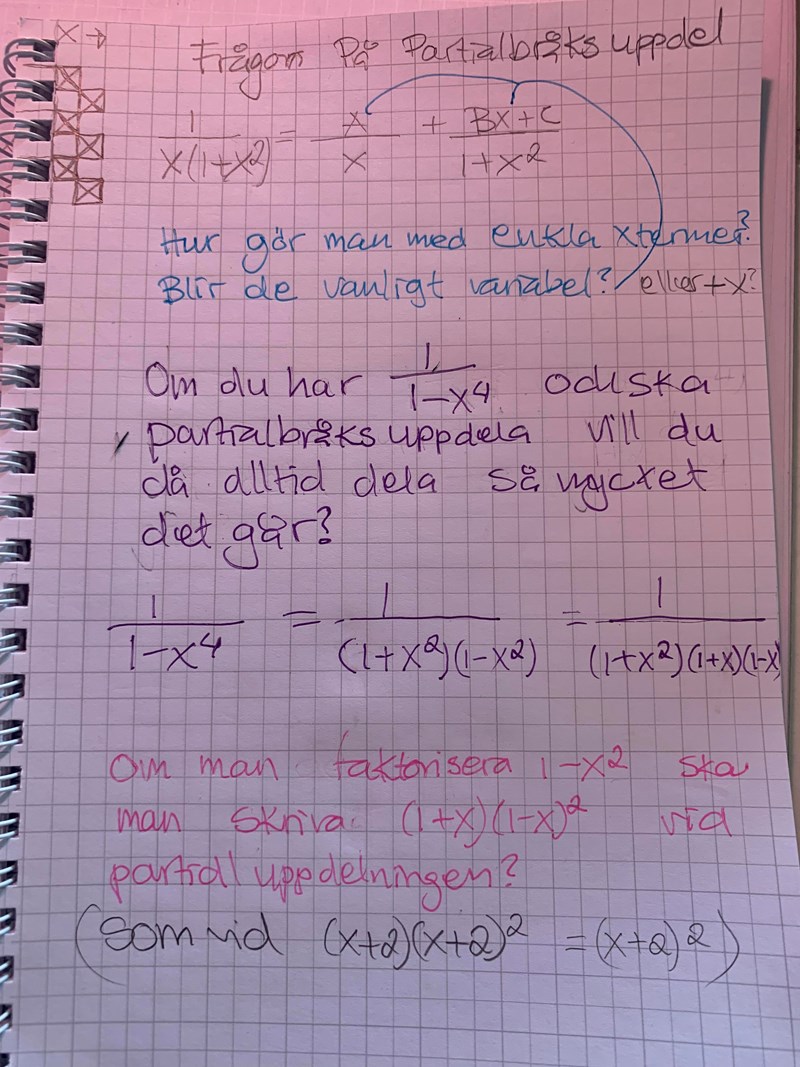 X →
Frågor På Partialbråksuppdel
1/X(1+X²) = A/X + BX+C/1+X²
Hur gör man med enkla xtermer?
Blir de vanligt variabel? eller +x?
Om du har 1/1-X⁴ och ska
partialbråksuppdela vill du
då alltid dela så mycket
det går?
1/1-X⁴ = 1/(1+X²)(1-X²) = 1/(1+X²)(1+X)(1-X)
Om man faktorisera 1-X² ska
man skriva (1+X)(1-X)² vid
partialluppdelningen?
(Som vid (X+2)(X+2)² =(X+2)²)